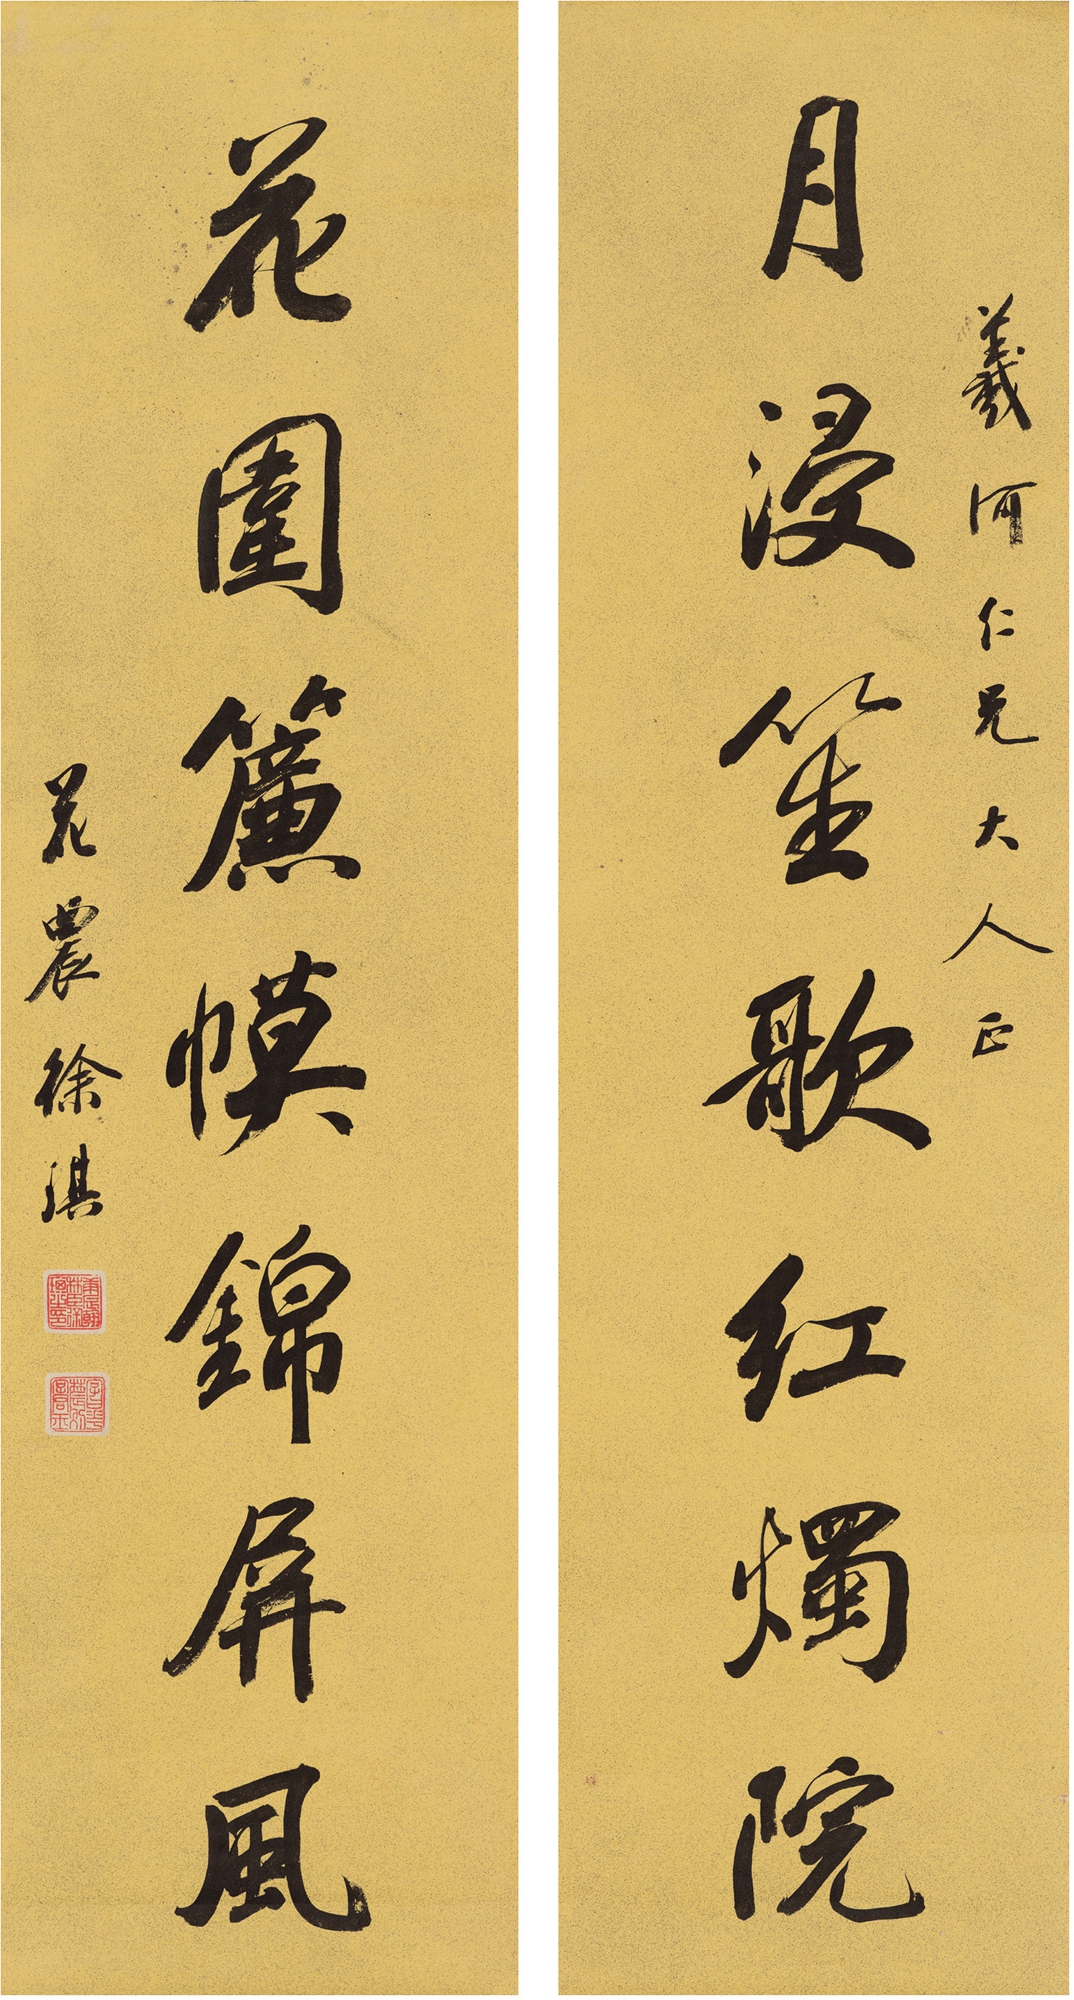 羲河仁兄大人正
月浸笙歌紅燭院
花圍簾幙錦屏風
花農徐琪